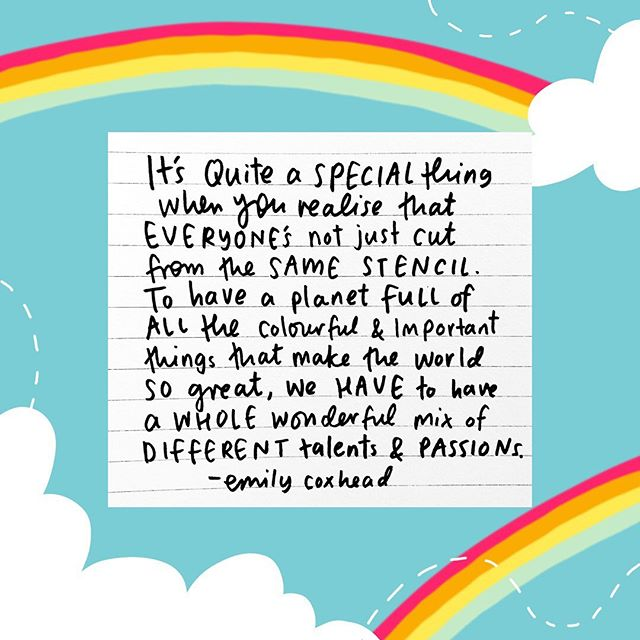 It's Quite a SPECIAL thing
when you realise that
EVERYONE's not just cut
from the SAME STENCIL.
To have a planet FULL of
ALL the colourful & Important
things that make the world
SO great, we HAVE to have
a WHOLE wonderful mix of
DIFFERENT talents & PASSIONS.
-emily coxhead